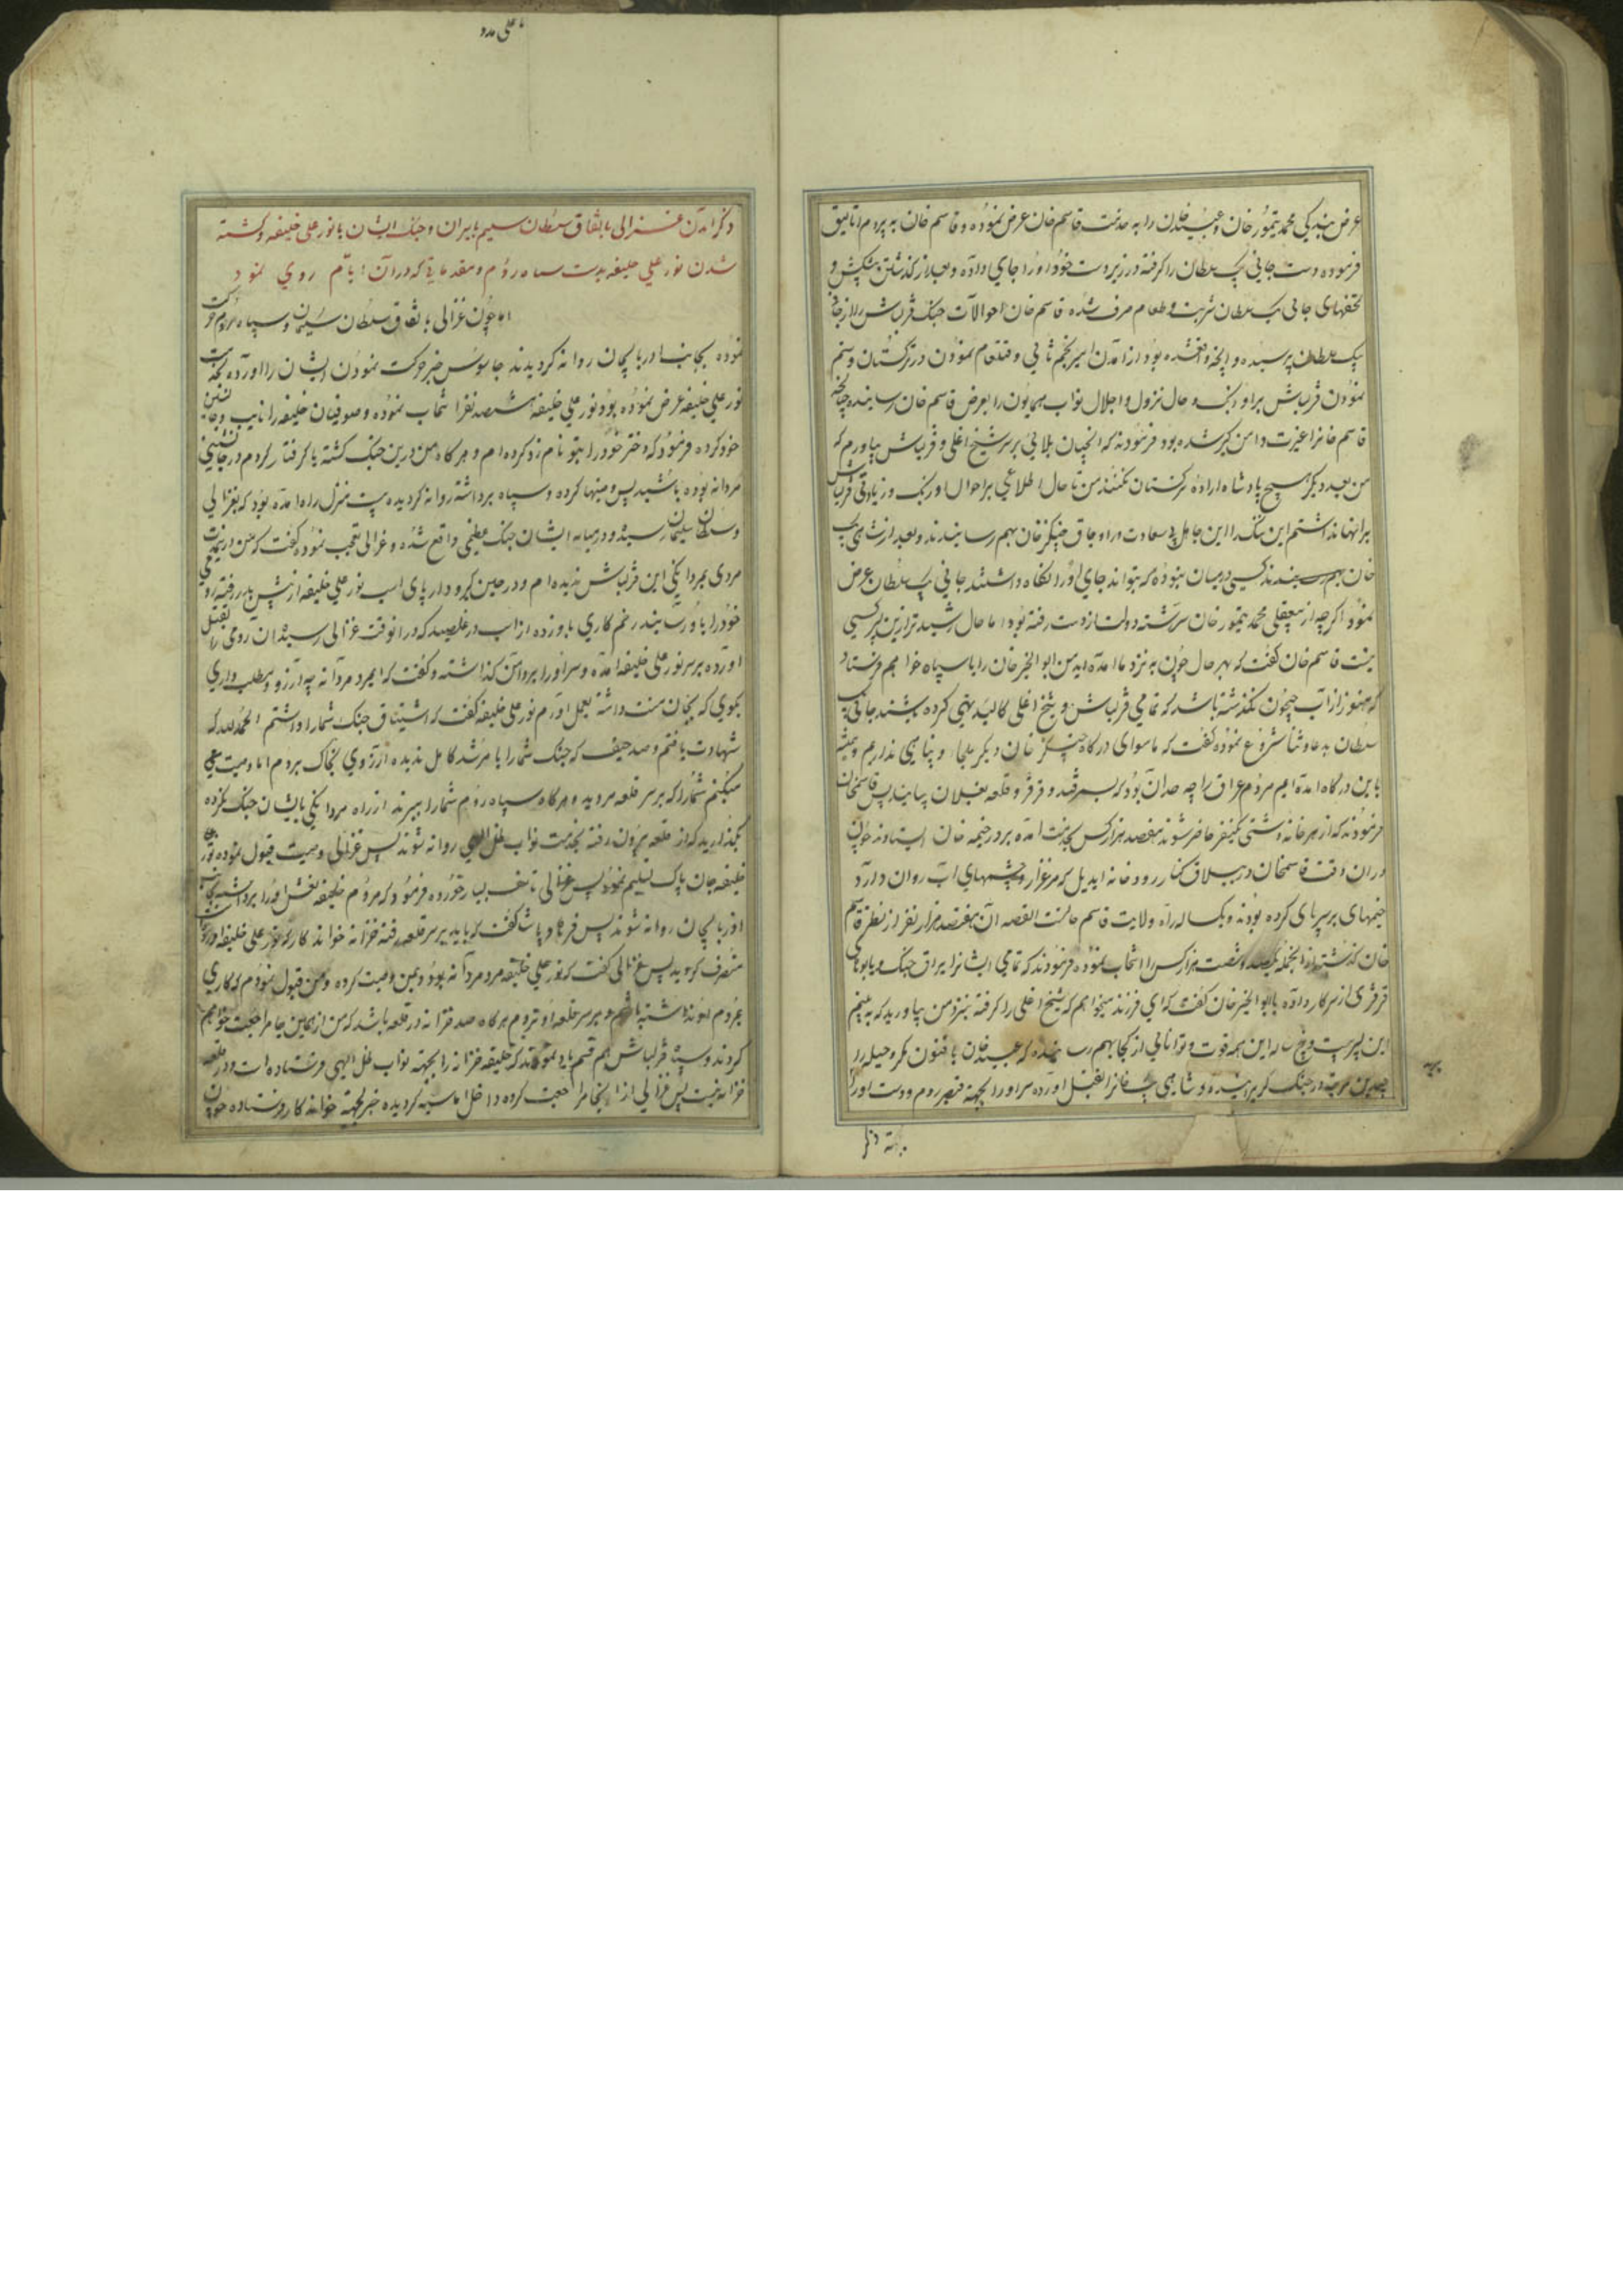 عرض بندیکی محمد تیمور خان و عبید خان را به خدمت قاسم خان عرض نموده و قاسم خان به پیرم اتالیق
فرموده دست جانی بک سلطان را گرفته در زیر دست خود او را جای داده و بعد از گذشتن پیشکش و
تحفهای جانی بک سلطان شربت و طعام صرف شده قاسم خان احوالات جنگ قزلباش را از جانی
بیک سلطان پرسیده و آنچه واقع شده بود از آمدن امیر نجم ثانی و قتلعام نمودن در ترکستان و ستم
نمودن قزلباش بر اوزبک و حال نزول و اجلال نواب همایون را بعرض قاسم خان رسانیده چنانچه
قاسم خانرا غیرت دامن گیر شده بود فرمودند که آنچنان بلائی بر سر شیخ اغلی و قزلباش بیاورم که
من بعد دیگر هیچ پادشاه اراده ترکستان نکنند من تا حال اطلاعی بر احوال اوزبک و زیادتی قزلباش
بر آنها نداشتم این ننگ را این جاهل بی سعادت در اوجاق چنگیز خان بهم رسانیدند و بعد از شاهی بک
خان بهم کسی در میان نبوده که بتواند جای او را نگاه داشتند جانی بک سلطان عرض
نمود اگرچه از بیعقلی محمد تیمور خان سررشته دولت از دست رفته بود اما حال رشیدتر ازین پسر کسی
نیست قاسم خان گفت که بهر حال چون به نزد ما آمده اید من ابو الخیر خان را با سپاه خواهم فرستاد
که هنوز از آب جیحون نگذشته باشد که تمامی قزلباش و شیخ اغلی کالبد تهی کرده باشند جانی بک
سلطان بدعا و ثنا شروع نموده گفت که ما سوای درگاه چنگیز خان دیگر ملجا و پناهی نداریم و همیشه
باین درگاه آمده ایم مردم عراق را چه حد آن بود که بسمرقند و قرقر و قلعه بغلان بیایند پس قاسمخان
فرمودند که از هر خانه دشتی یکنفر حاضر شوند هفصد هزار کس بخدمت آمده بر در خیمه خان ایستادند چون
در آن وقت قاسمخان در ییلاق کنار رودخانه ایدیل که مرغزار و چشمهای آب روان دارد
خیمهای بر سر پای کرده بودند و یکساله راه ولایت قاسم خانست القصه آن هفتصد هزار نفر از نظر قاسم
خان گذشتند از آنجمله یکصد و شصت هزار کس را انتخاب نموده فرمودند که تمامی ایشانرا یراق جنگ و یابوهای
قرقری از سرکار داده بابو الخیر خان گفت که ای فرزند میخواهم که شیخ اغلی را گرفته بنزد من بیاورید که به بینم
این پسر بیست و پنج ساله این همه قوت و توانائی از کجا بهم رسانیده که عبید خان با فنون مکر و حیله را
چندین مرتبه در جنگ گریزانیده و شاهی بک خانرا بقتل آورده سر او را بجهته قیصر روم و دست او را
بجهته
بجهته ذکر
یا علی مدد
ذکر آمدن غزالی باتفاق سلطان سلیم بایران و جنگ ایشان با نور علی خلیفه و کشته
شدن نور علی خلیفه بدست سپاه روم و مقدماتی که در آن ایام روی نمود
اما چون غزالی باتفاق سلطان سلیمان و سپاه مردم حرکت
نموده بجانب آذربایجان روانه گردیدند جاسوس خبر حرکت نمودن ایشان را آورده بخدمت
نور علی خلیفه عرض نموده بود و نور علی خلیفه ششصد نفر انتخاب نموده و صوفیان خلیفه را نایب و جانشین
خود کرده فرمود که دختر خود را بتو نامزد کرده ام و هرگاه من درین جنگ کشته یا گرفتار گردم در جانشینی
مردانه بوده باشید پس و منهیا کرده و سپاه برداشته روانه گردیده بیست منزل راه آمده بود که بغزالی
و سلطان سلیمان رسیده و در میانه ایشان جنگ عظیمی واقع شده و غزالی تعجب نموده گفت که من در مدت
مردی بمردانگی این قزلباش ندیده ام و در حین گیرودار پای اسب نور علی خلیفه از پیش بدر رفته رومی
خود را باو رسانیده زخم کاری باو زده از اسب در غلطید که در آنوقت غزالی رسیده آن رومی را بقتل
آورده بر سر نور علی خلیفه آمده و سر او را بر دامن گذاشته و گفت که ایمرد مردانه چه آرزو و مطلب داری
بگوی که بجان منت داشته بعمل آورم نور علی خلیفه گفت که اشتیاق جنگ شما را داشتم الحمدلله که
شهادت یافتم و صد حیف که جنگ شما را با مرشد کامل ندیده آرزوی بخاک بردم اما وصیت
میکنم شما را که بر سر قلعه مروید و هرگاه سپاه روم شما را ببرند از راه مردانگی بایشان جنگ نکرده
بگذارید که از قلعه بیرون رفته بخدمت نواب ظل الهی روانه شوند پس غزالی وصیت قبول نموده نور علی
خلیفه جان پاک تسلیم نمود پس غزالی تاسف بسیار خورده فرمود که مردم خلیفه نعش او را برداشته بجانب
آذربایجان روانه شوند پس فرهاد پاشا گفت که باید بر سر قلعه رفته خزانه خواند کار که نور علی خلیفه آورده
متصرف گردید پس غزالی گفت که نور علی خلیفه مرد مردانه بود و بمن وصیت کرده و من قبول نمودم که کاری
بمردم او نداشته باشم و بر سر قلعه او نروم هرگاه صد خزانه در قلعه باشد که من از همین جا مراجعت خواهم
کردند و سپاه قزلباش هم قسم یاد نمودند که خلیفه خزانه را بجهته نواب ظل الهی فرستاده است و در قلعه
خزانه نیست پس غزالی از اینجا مراجعت کرده داخل اماسیه گردیده خبر بجهته خواند کار فرستاده چون